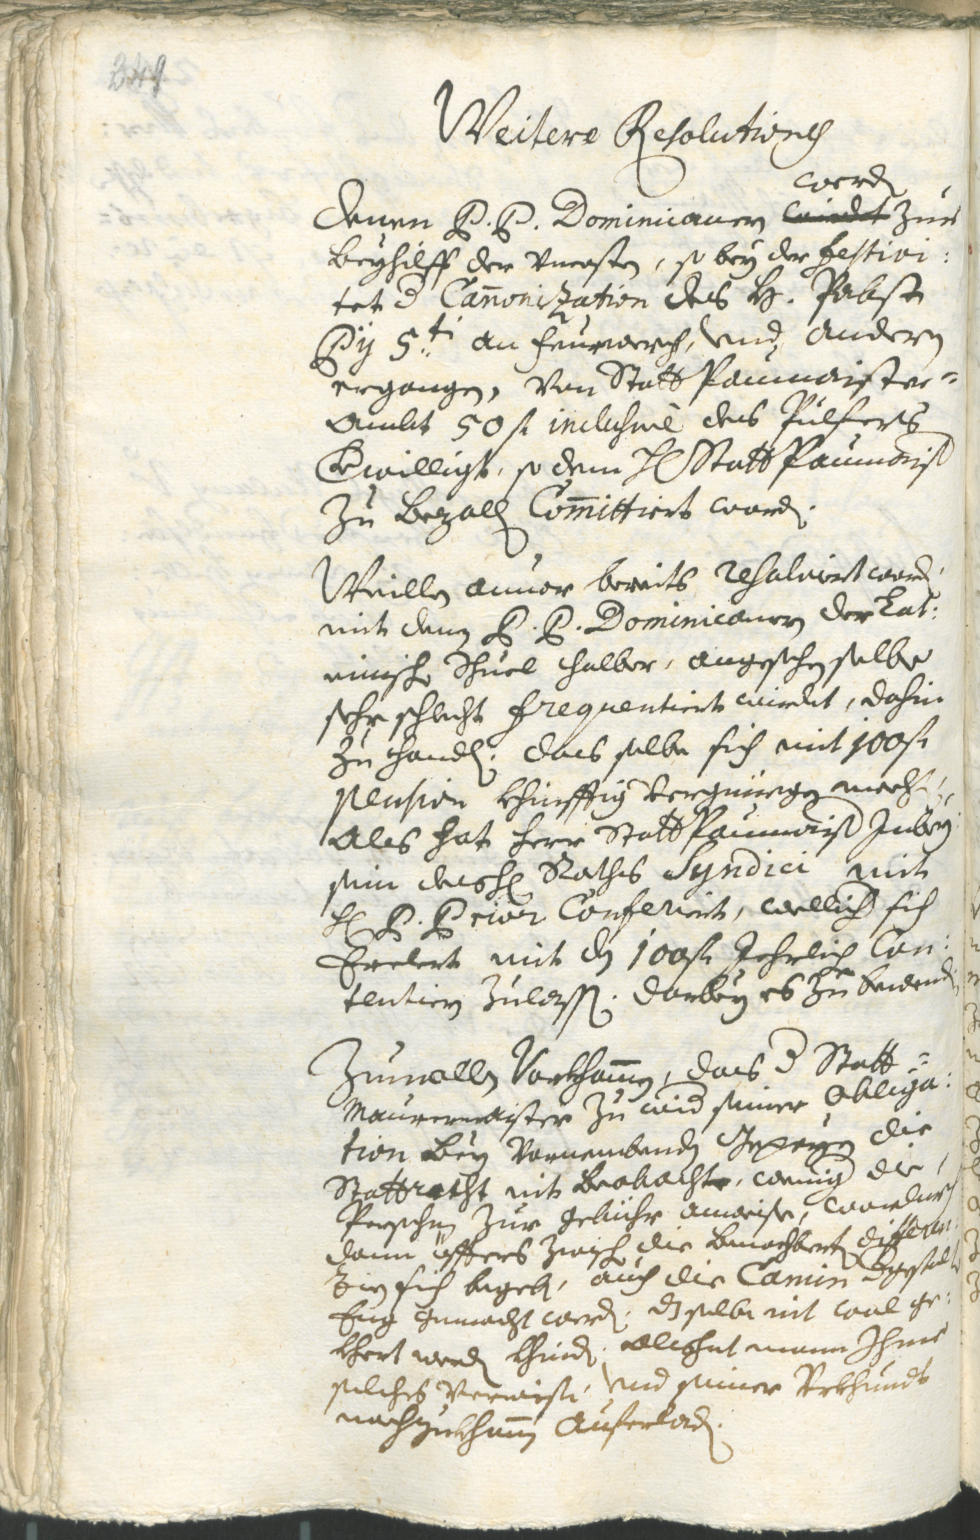 349
Weitere Resolutionen
werdn
Denen P. P. Dominicanern wirdet zur
Beyhilff der Vncosten, so bey der festivi:
tet d Cannonization des H. Pabsts
Pij 5.ti an feurwerch, vnd andern
ergangen, von Statt Paumaister=
Ambt 50 fl inclusivè des Pulfers
Bewilligt, so dem H. Statt Paumaister
zu bezalln Committiert wordn.
Weillen anuor bereits resoluiert wordn,
mit denen P. P. Dominicanern der Lat:
einische Schuel halber, angesehen selbe
sehr schlecht frequentiert wirdet, dahin
zu handln: das selbe sich mit 100 fl
pension khünfftig vergnüegen mechten,
Als hat Herr Statt Paumaister Jnbey
sein des H. Raths Syndici mit
H. P. Prior Conferiert, wellicher sich
Erclert mit den 100 fl Jehrlich Con:
tentiern zulassen. darbey es zu bewenden
Zumallen Vorkhommen, das d Statt=
Maurermaister zu wid seiner Obliga:
tion bey vornembenden Gepeyen die
Stattrecht nit beobachte, weniger die
Persohn zur gebühr anweise, wordurch
dann öffters zwischen die benachberten differen:
zien sich begeben, auch die Camin dgestalt
Eng gemacht werdn, dz selbe nit wol ge:
khert werdn khinden. Als hat mann Jhme
solches verwisen, vnd seiner Vrkhundt
nachzukhommen Auferladn.